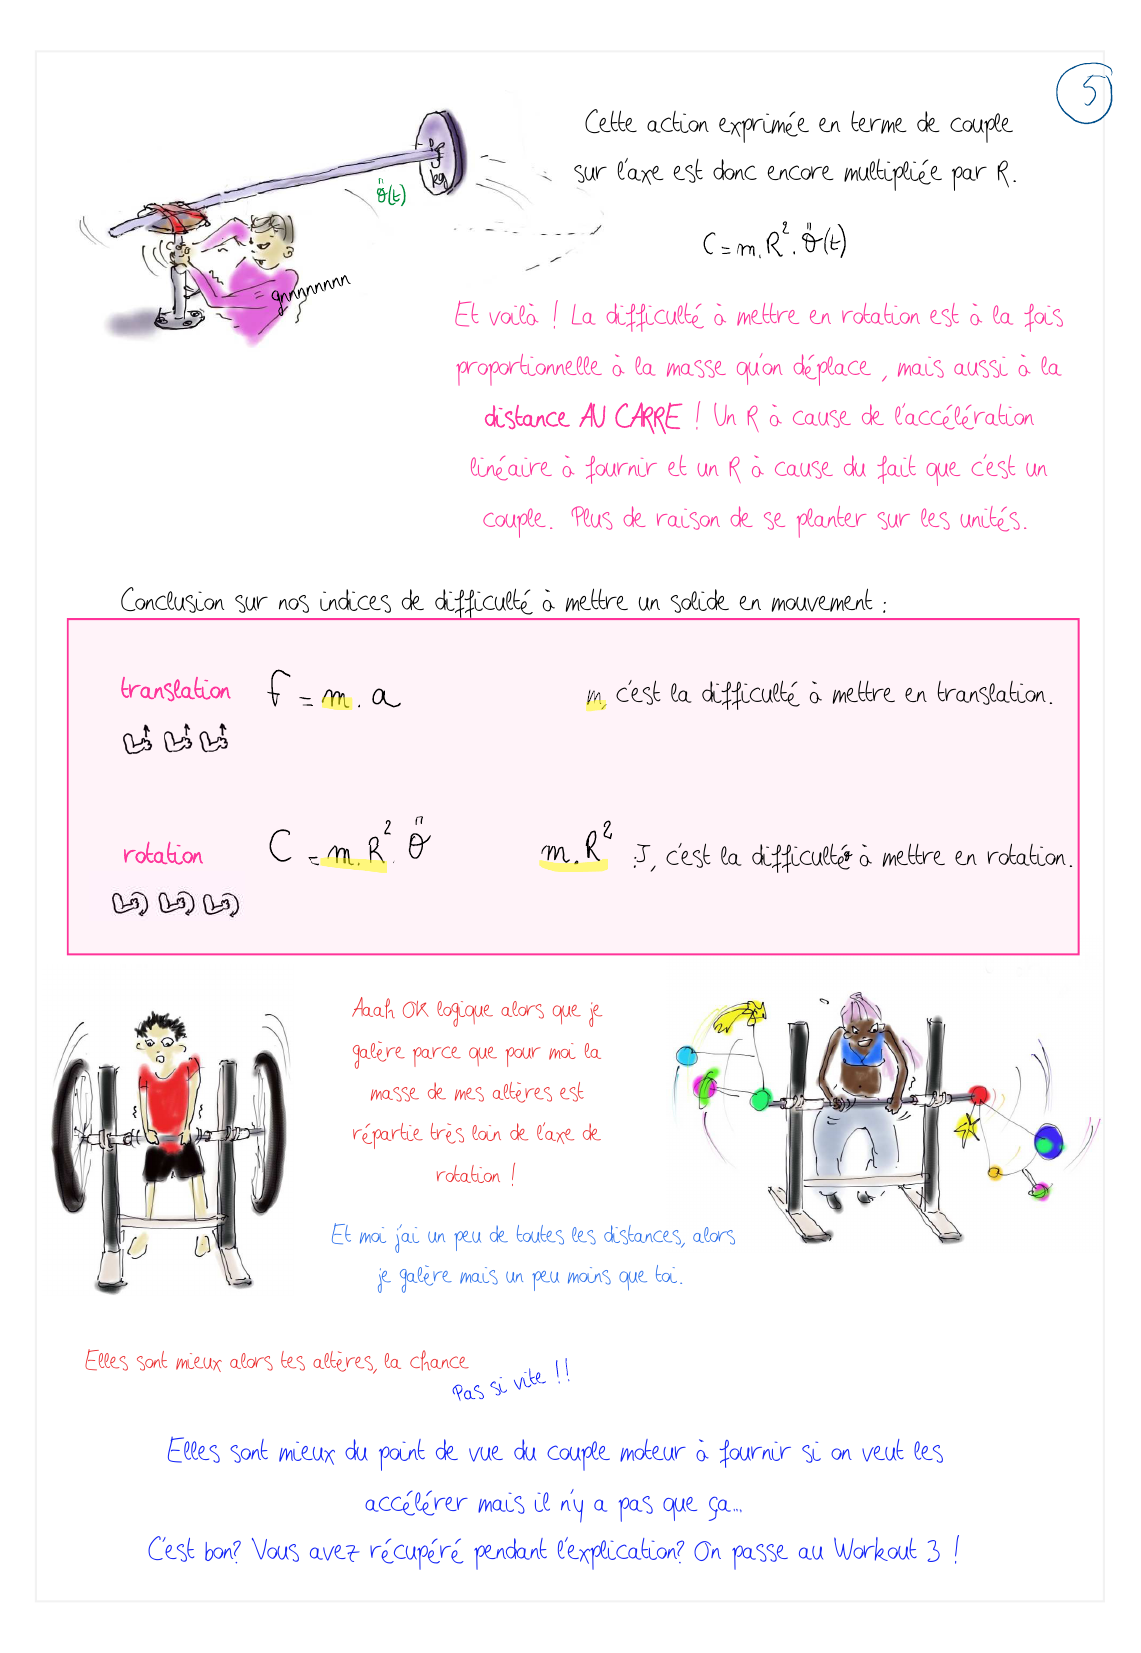 5
Cette action exprimée en terme de couple
sur l'axe est donc encore multipliée par R.
kg
θ̈(t)
C = m.R². θ̈(t)
gnnnnnnnn
Et voilà ! La difficulté à mettre en rotation est à la fois
proportionnelle à la masse qu'on déplace , mais aussi à la
distance AU CARRE ! Un R à cause de l'accélération
linéaire à fournir et un R à cause du fait que c'est un
couple. Plus de raison de se planter sur les unités.
Conclusion sur nos indices de difficulté à mettre un solide en mouvement :
translation f = m . a m, c'est la difficulté à mettre en translation.
rotation C = m.R². θ̈ m.R² :J, c'est la difficulté à mettre en rotation.
Aaah OK logique alors que je
galère parce que pour moi la
masse de mes altères est
répartie très loin de l'axe de
rotation !
Et moi j'ai un peu de toutes les distances, alors
je galère mais un peu moins que toi.
Elles sont mieux alors tes altères, la chance
Pas si vite !!
Elles sont mieux du point de vue du couple moteur à fournir si on veut les
accélérer mais il n'y a pas que ça...
C'est bon? Vous avez récupéré pendant l'explication? On passe au Workout 3 !